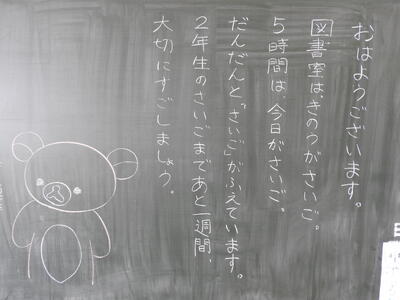 おはようございます。
図書室は、きのうがさいご。
5時間は、今日がさいご。
だんだんと"さいご"がふえています。
2年生のさいごまであと一週間、
大切にすごしましょう。